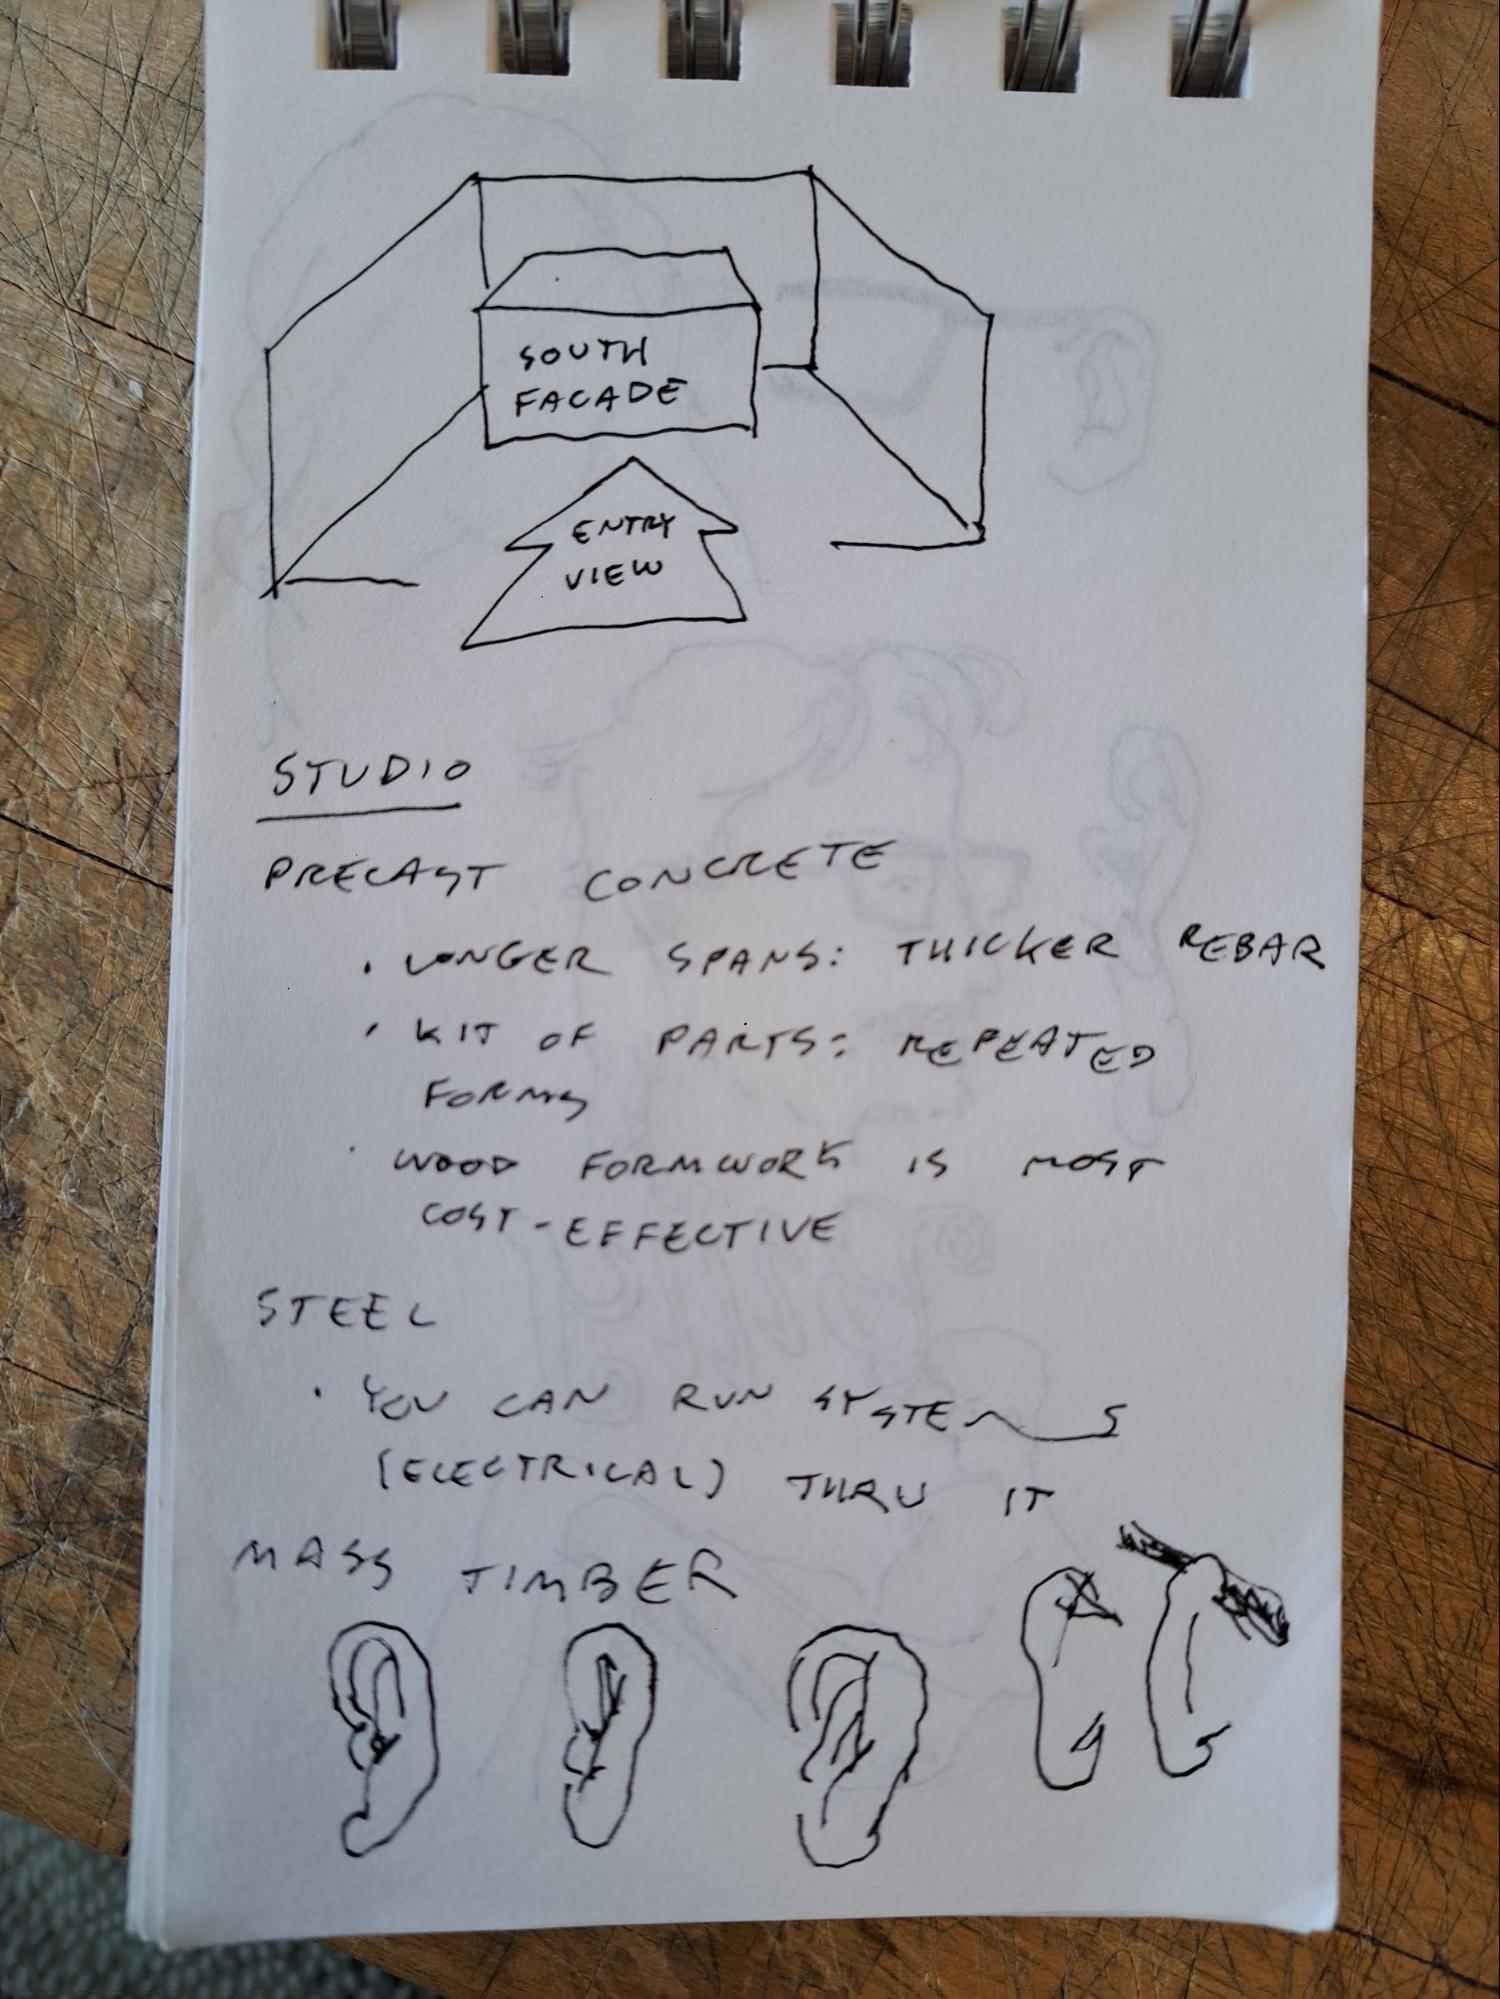 SOUTH
FACADE
ENTRY
VIEW
STUDIO
PRECAST CONCRETE
· LONGER SPANS: THICKER REBAR
· KIT OF PARTS: REPEATED
FORMS
· WOOD FORMWORK IS MOST
COST-EFFECTIVE
STEEL
· YOU CAN RUN SYSTEMS
(ELECTRICAL) THRU IT
MASS TIMBER